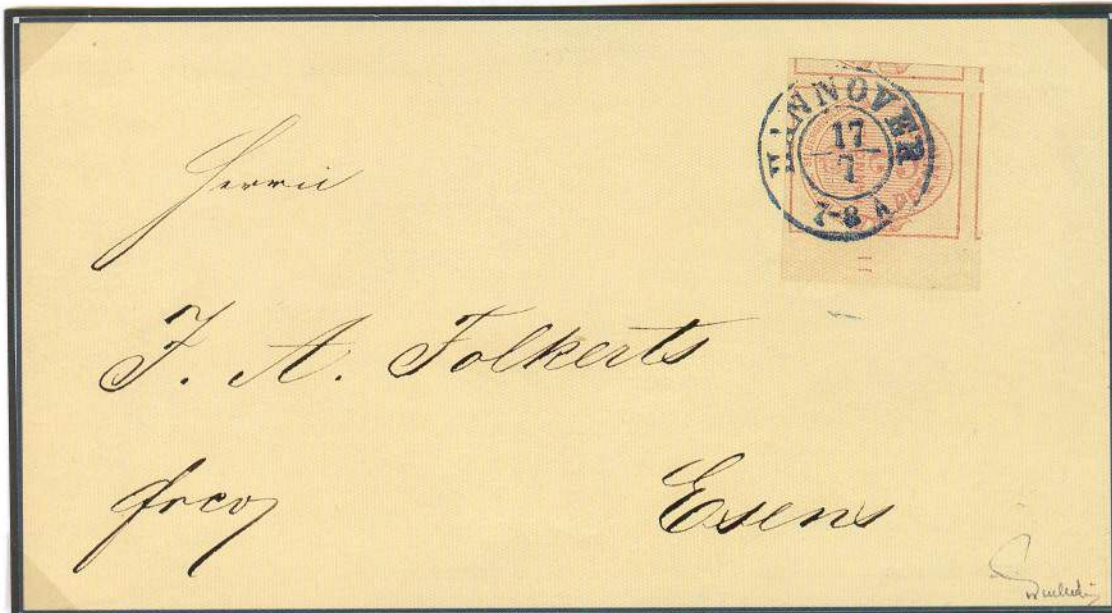 HANNOVER
17
7
7-8 A
Herrn
J. A. Folkerts
frco
Esens